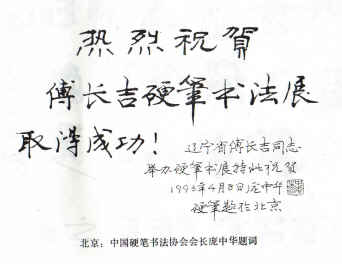 热烈祝賀
傅长吉硬筆书法展
取得成功！
辽宁省傅长吉同志
举办硬筆书展特此祝贺
1993年4月8日庞中华
硬筆题于北京
北京：中国硬笔书法协会会长庞中华题词